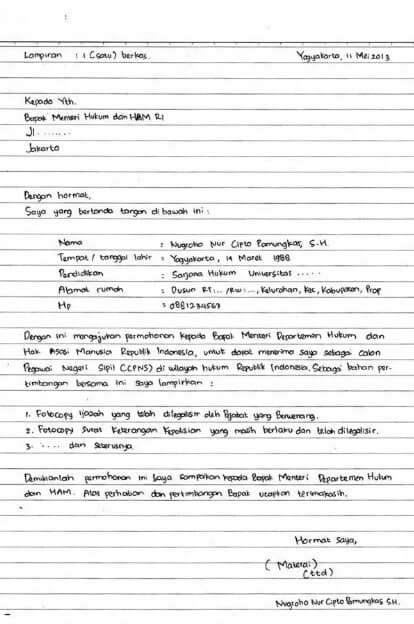 Lampiran : 1 (satu) berkas. Yogyakarta, 11 Mei 2013
Kepada Yth.
Bapak Menteri Hukum dan HAM RI
Jl .......
Jakarta
Dengan hormat,
Saya yang bertanda tangan dibawah ini :
Nama : Nugroho Nur Cipto Pamungkas, S.H.
Tempat / tanggal lahir : Yogyakarta, 14 Maret 1988
Pendidikan : Sarjana Hukum Universitas .....
Alamat rumah : Dusun RT... /RW:..., Kelurahan, Kec, Kabupaten, Prop
Hp : 0881234567
Dengan ini mengajukan permohonan kepada Bapak Menteri Departemen Hukum dan
Hak Asasi Manusia Republik Indonesia, untuk dapat menerima saya sebagai calon
Pegawai Negeri Sipil (CPNS) di wilayah hukum Republik Indonesia. Sebagai bahan per-
timbangan bersama ini saya lampirkan :
1. Fotocopy ijasah yang telah dilegalisir oleh Pejabat yang Berwenang.
2. Fotocopy Surat Keterangan Kepolisian yang masih berlaku dan telah dilegalisir.
3. .... dan seterusnya
Demikianlah permohonan ini saya sampaikan kepada Bapak Menteri Departemen Hukum
dan HAM. Atas perhatian dan pertimbangan Bapak ucapkan terimakasih.
Hormat Saya,
( Materai )
(ttd)
Nugroho Nur Cipto Pamungkas S.H.